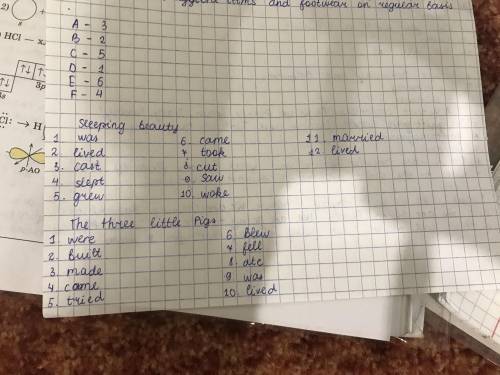 2)
s
items and footwear on regular basis
HCl — x
A - 3
B - 2
C - 5
D - 1
E - 6
F - 4
3s
3p
Cl: → H
p-AO
Sleeping beauty
1. was
2. lived
3. cast
4. slept
5. grew
6. came
7. took
8. cut
9. saw
10. woke
11. married
12. lived
The three little Pigs
1 were
2. Built
3. made
4 came
5. tried
6. Blew
7 fell
8. ate
9 was
10. lived